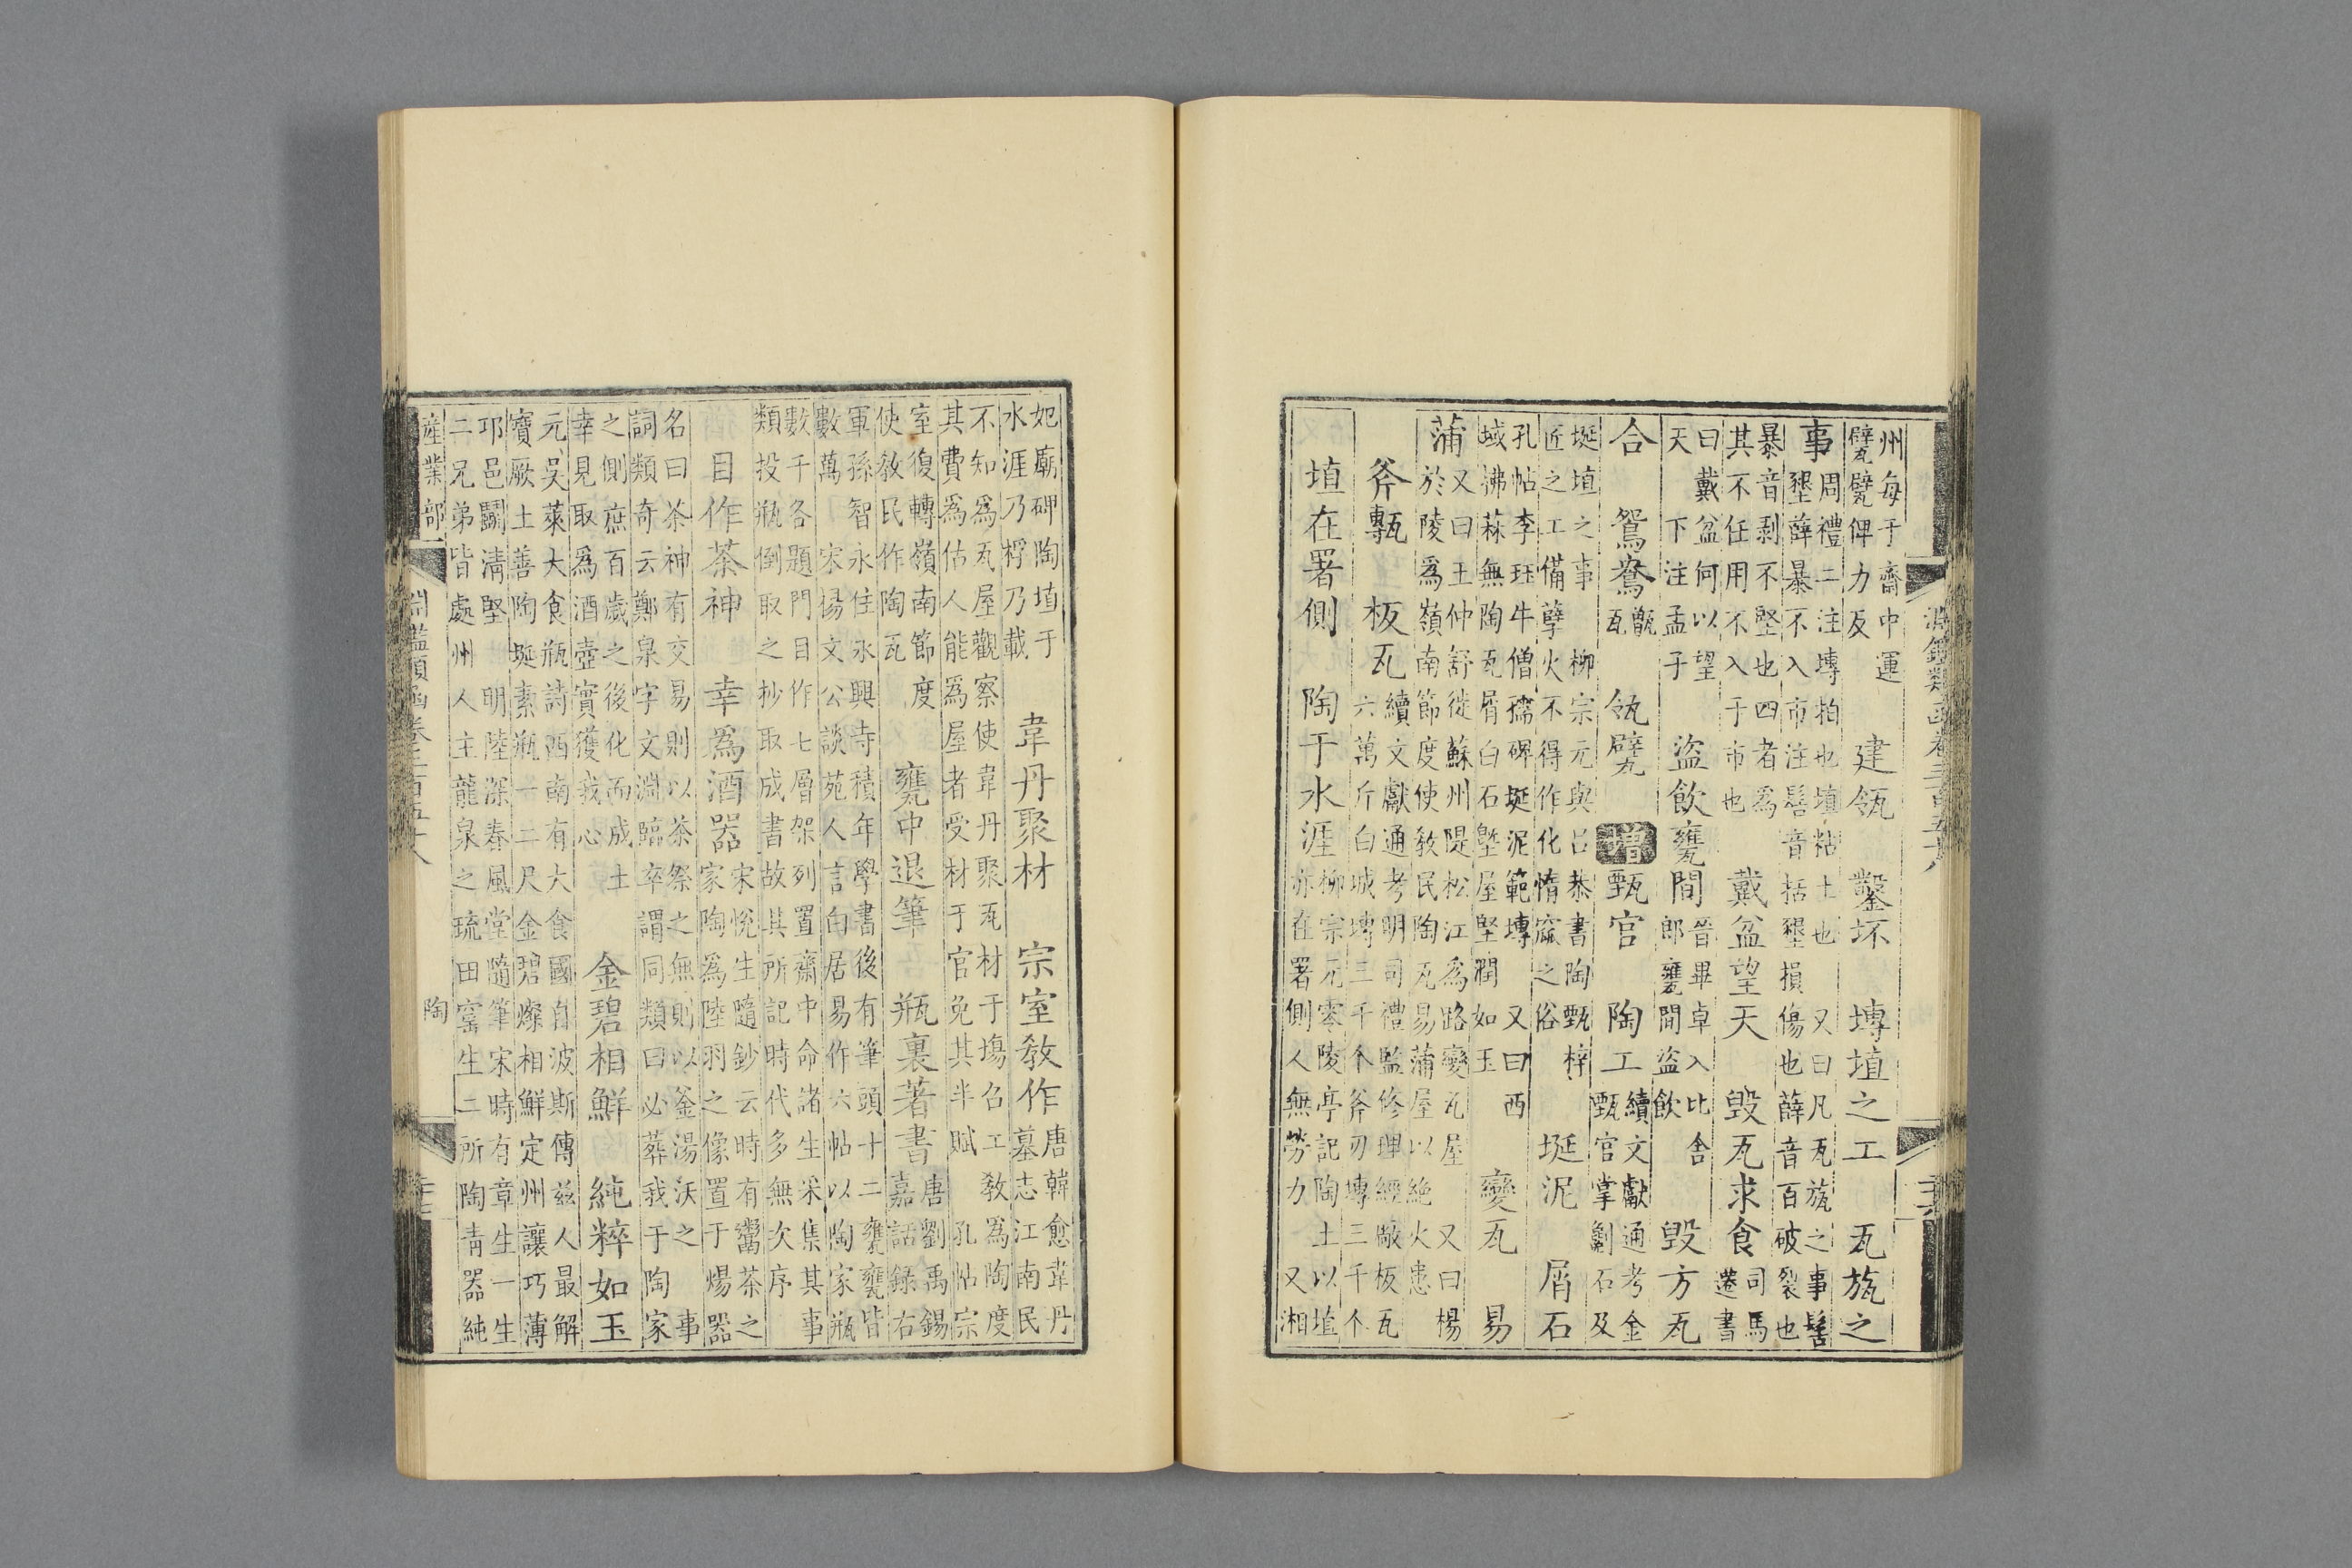 淵鑑類函卷三百五十八
州每于齋中運
甓甓俾力反
建瓴　鑿坏　塼埴之工　瓦旊之
事
周禮二注塼拍也埴粘土也　又曰凡瓦旊之事髺
墾薜暴不入市注髺音括墾損傷也薜音百破裂也
暴音剥不堅也四者為
其不任用不入于市也
戴盆望天　毁瓦求食
司馬
遷書
曰戴盆何以望
天　下注孟子
盜飲甕間
晉畢卓入比舍
郎甕間盜飲
毁方瓦
合　鴛鴦
甋
瓦
瓴甓　增　甄官　陶工
續文獻通考金
甄官掌劖石及
埏埴之事　柳宗元與呂恭書陶甄梓
匠之工備孽火不得作化惰窳之俗
埏泥　屑石
孔帖李珏牛僧孺碑埏泥範塼　又曰西
域拂菻無陶瓦屑白石塈屋堅潤如玉
變瓦　易
蒲
又曰王仲舒徙蘇州隄松江為路變瓦屋　又曰楊
於陵為嶺南節度使教民陶瓦易蒲屋以絶火患
斧甎　板瓦
續文獻通考明司禮監修理經厰板瓦
六萬斤白城塼三千个斧刃塼三千个
埴在署側　陶于水涯
柳宗元零陵亭記陶土以埴
亦在署側人無勞力　又湘
妃廟碑陶埴于
水涯乃桴乃載
韋丹聚材　宗室教作
唐韓愈韋丹
墓志江南民
不知為瓦屋觀察使韋丹聚瓦材于塲召工教為陶度
其費為估人能為屋者受材于官免其半賦　孔帖宗
室復轉嶺南節度
使教民作陶瓦
甕中退筆　瓶裏著書
唐劉禹錫
嘉話録右
軍孫智永住永興寺積年學書後有筆頭十二甕甕皆
數萬　宋楊文公談苑人言白居易作六帖以陶家瓶
數千各題門目作七層架列置齋中命諸生采集其事
類投瓶倒取之抄取成書故其所記時代多無次序
目作茶神　幸為酒器
宋悅生隨鈔云時有鬻茶器之
家陶為陸羽之像置于煬器
名曰茶神有交易則以茶祭之無則以釜湯沃之　事
詞類奇云鄭泉字文淵臨卒謂同類曰必葬我于陶家
之側庶百歲之後化而成土
幸見取為酒壺實獲我心
金碧相鮮　純粹如玉
元吳萊大食瓶詩西南有大食國自波斯傳兹人最解
寶厥土善陶埏素瓶一二尺金碧燦相鮮定州讓巧薄
邛邑鬭清堅　明陸深春風堂隨筆宋時有章生一生
二兄弟皆處州人主龍泉之琉田窰生二所陶青器純
産業部　淵鑑類函卷三百五十八　陶